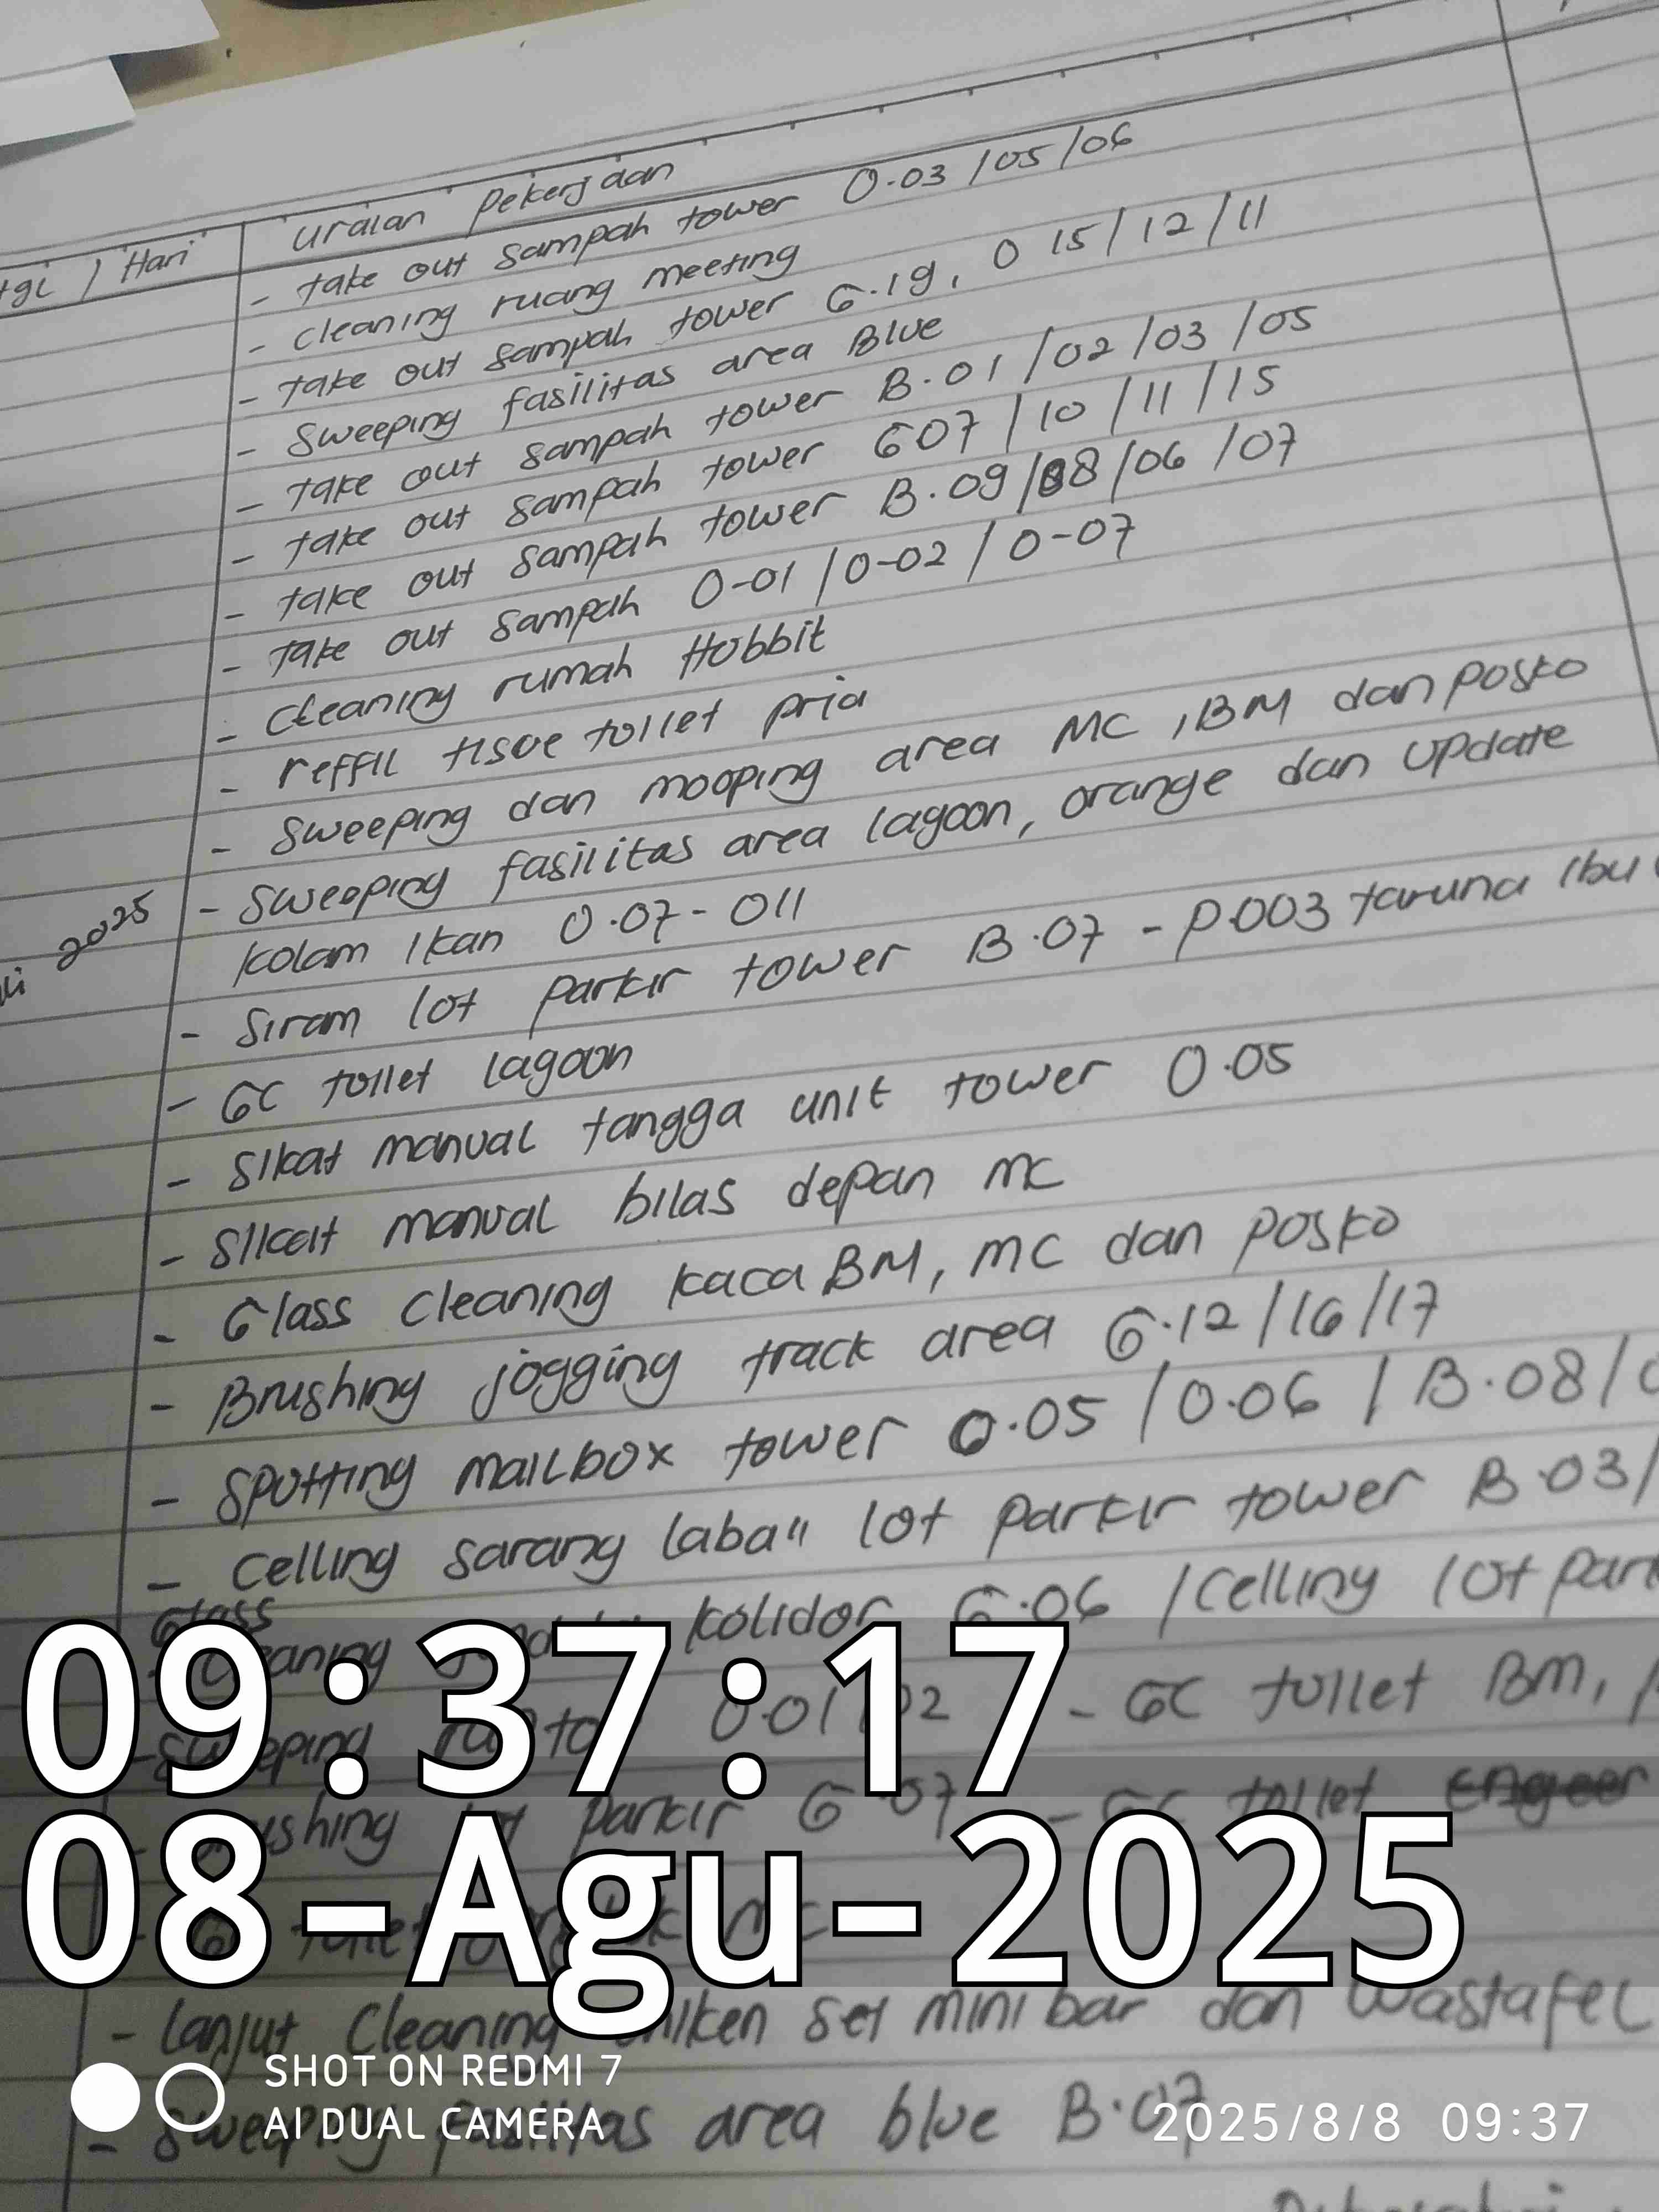 tgl / Hari
uraian pekerjaan
- take out sampah tower 0.03 /05 /06
- cleaning ruang meeting
- take out sampah tower G.19, 0 15/ 12 / 11
- sweeping fasilitas area Blue
- take out sampah tower B.01 /02 /03 /05
- take out sampah tower G07 / 10 / 11 / 15
- take out sampah tower B.09 /08 /06 /07
- take out sampah 0-01 /0-02 / 0-07
- cleaning rumah Hobbit
- reffil tisue toilet pria
- sweeping dan mooping area MC , BM dan posko
- sweeping fasilitas area lagoon, orange dan update
2025
kolam ikan 0.07 - 011
- siram lot parkir tower B.07 - P.003 taruna ibu
- GC toilet lagoon
- sikat manual tangga unit tower 0.05
- sikat manual bilas depan mc
- Glass cleaning kaca BM, MC dan posko
- Brushing jogging track area G.12 / 16 / 17
- spotting mailbox tower 0.05 / 0.06 / B.08 /
- celling sarang laba" lot parkir tower B.03/
Glass
kolidor G.06 / celling lot
0.01 - GC toilet BM,
parkir G 07 - GC toilet
mc
- lanjut cleaning set mini bar dan wastafel
- sweeping fasilitas area blue B.07
09:37:17
08-Agu-2025
SHOT ON REDMI 7
AI DUAL CAMERA
2025/8/8 09:37